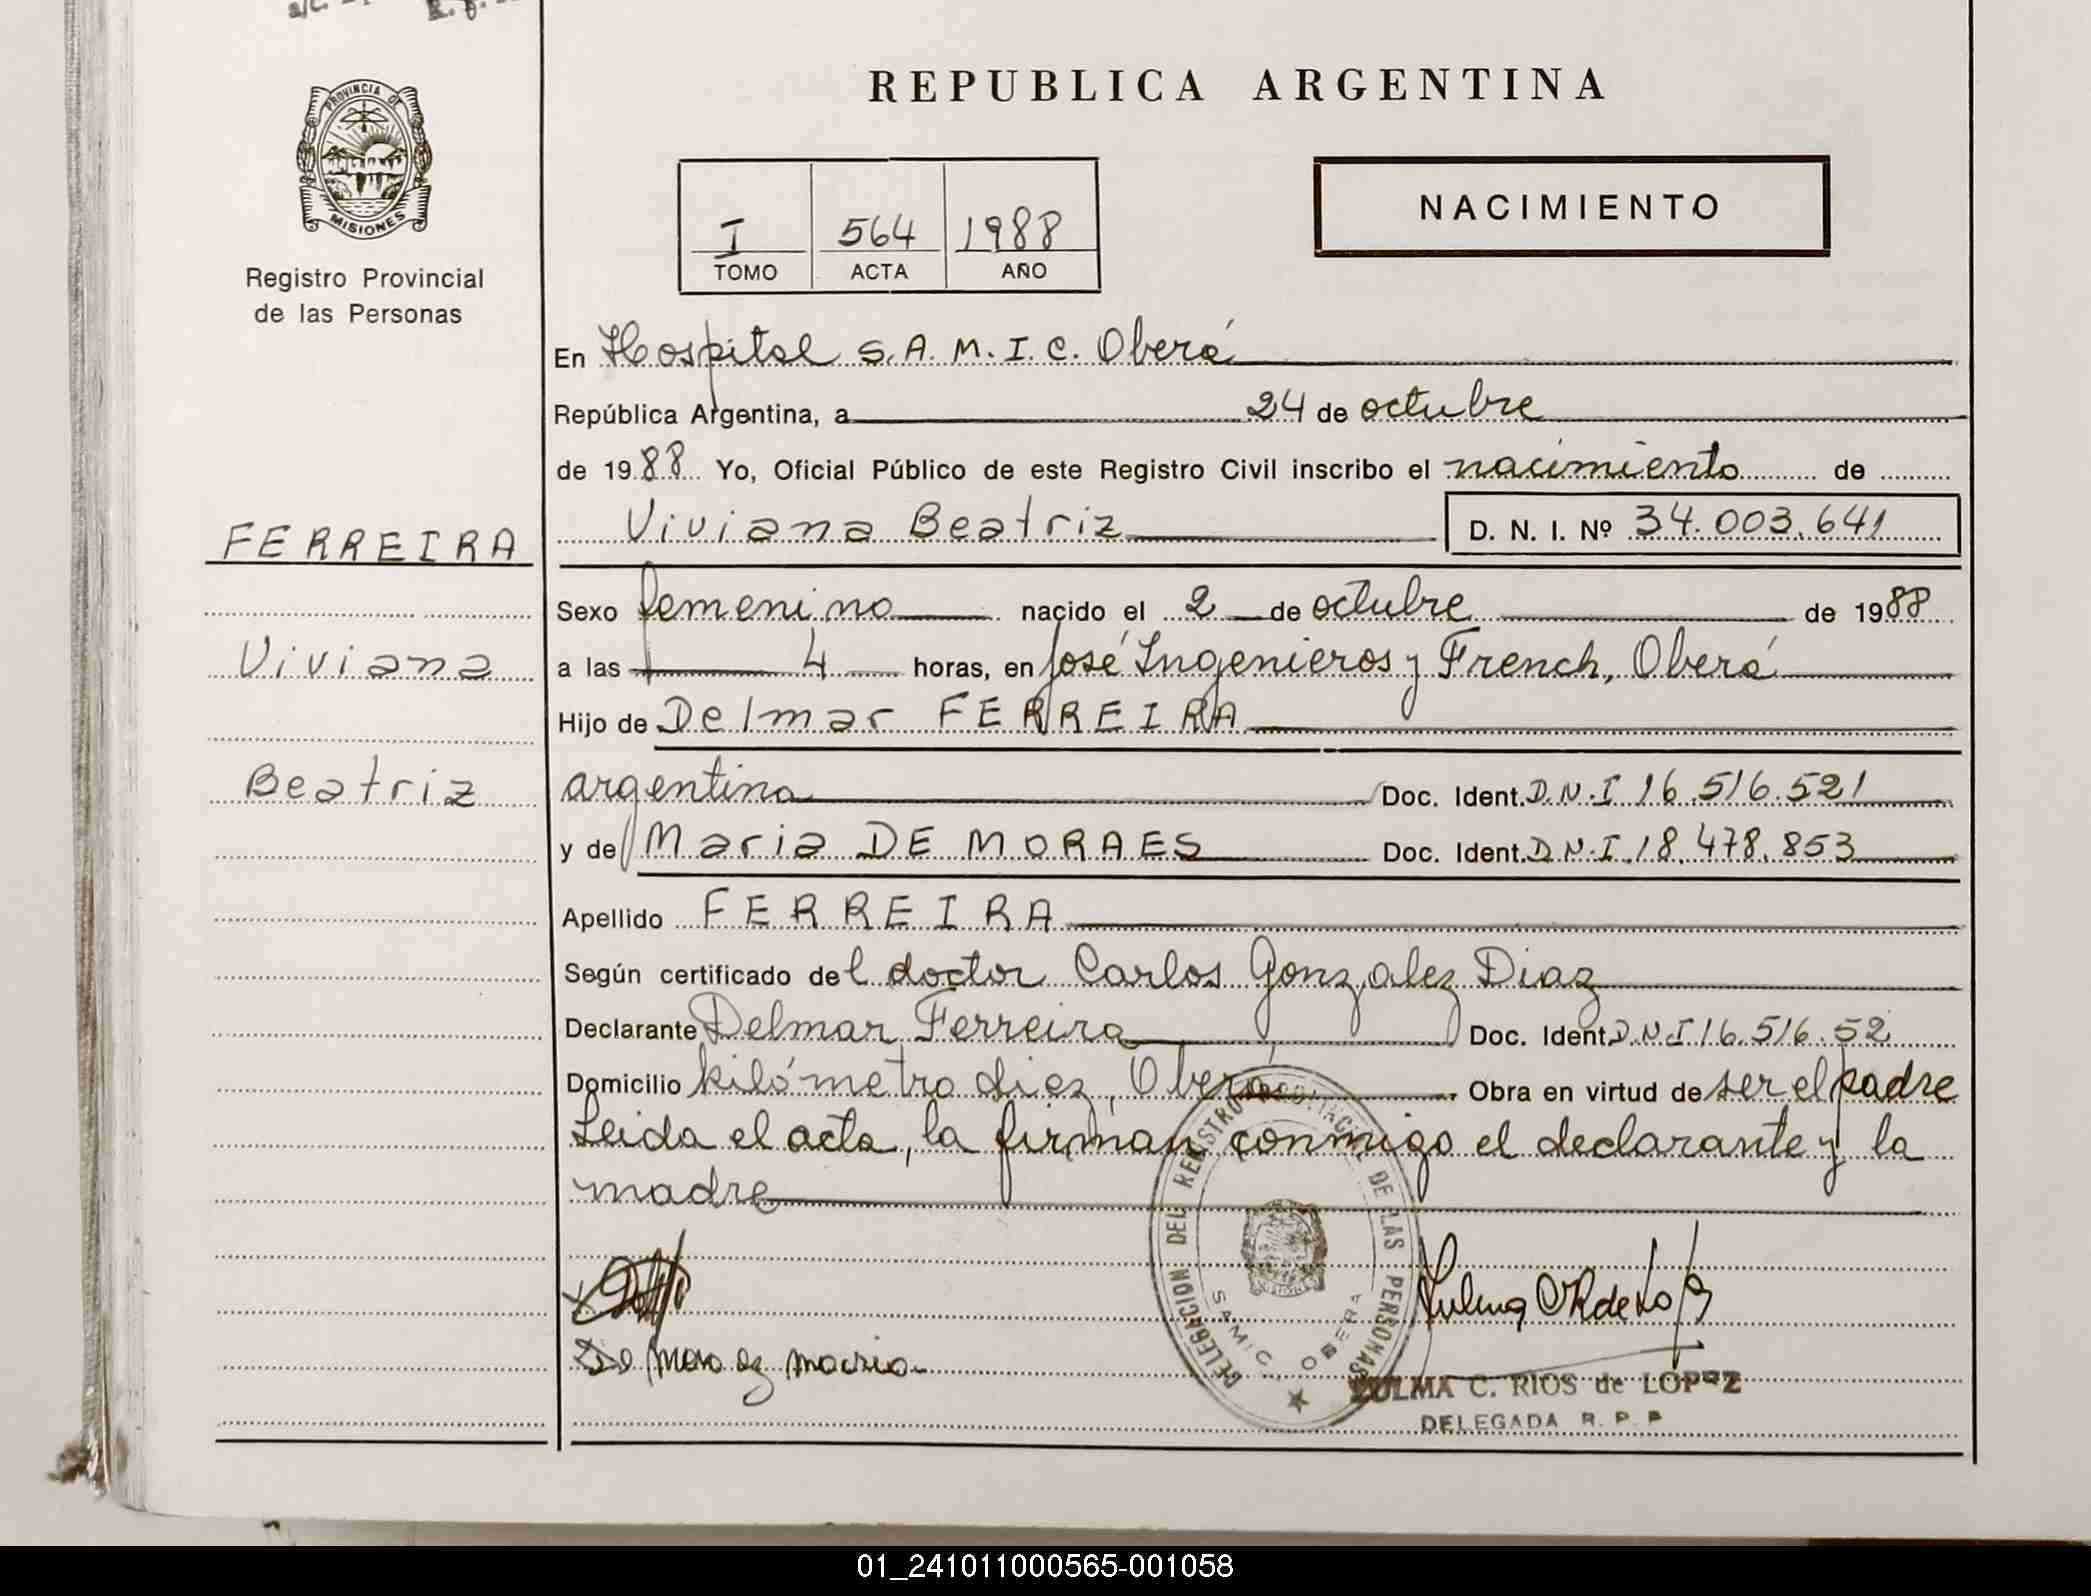 PROVINCIA DE
MISIONES
Registro Provincial
de las Personas
REPUBLICA ARGENTINA
I 564 1988
TOMO ACTA AÑO
NACIMIENTO
En Hospital S.A.M.I.C. Oberá
República Argentina, a 24 de octubre
de 1988 Yo, Oficial Público de este Registro Civil inscribo el nacimiento de
Viviana Beatriz D. N. I. Nº 34.003.641
FERREIRA
Sexo femenino nacido el 2 de octubre de 1988
Viviana
a las 4 horas, en José Ingenieros y French, Oberá
Hijo de Delmar FERREIRA
Beatriz
argentina Doc. Ident. D.N.I 16.516.521
y de Maria DE MORAES Doc. Ident. D.N.I. 18.478.853
Apellido FERREIRA
Según certificado del doctor Carlos Gonzalez Diaz
Declarante Delmar Ferreira Doc. Ident D.N.I 16.516.52
Domicilio kilómetro diez, Oberá. Obra en virtud de ser el padre
Leida el acta, la firman conmigo el declarante y la
madre
DELEGACION DEL REGISTRO PROVINCIAL DE LAS PERSONAS
SAMIC. OBERA
ZULMA C. RIOS de LOPEZ
DELEGADA R. P. P
01_241011000565-001058